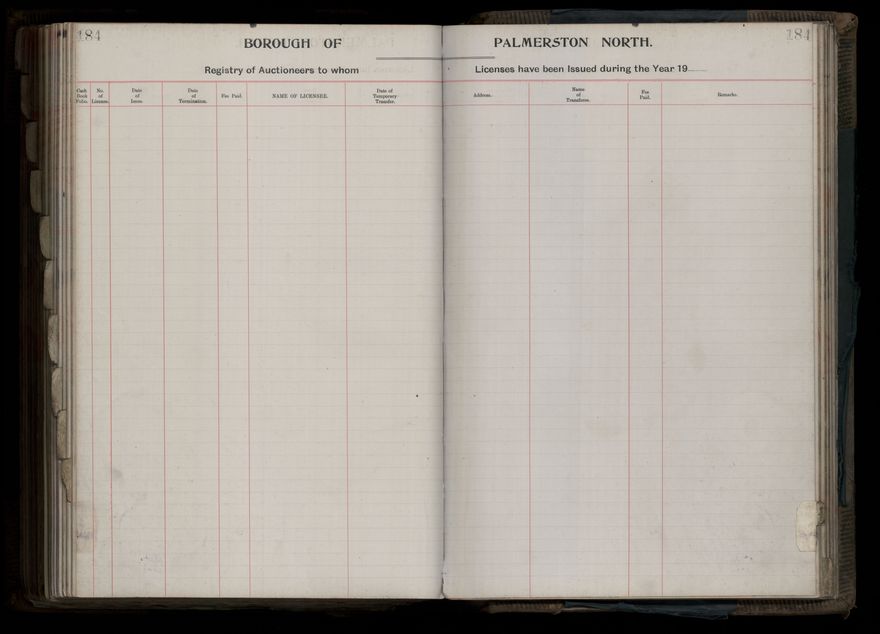 184
BOROUGH OF PALMERSTON NORTH.
184
Registry of Auctioneers to whom Licenses have been Issued during the Year 19
Cash Book Folio.
No. of License.
Date of Issue.
Date of Termination.
Fee Paid.
NAME OF LICENSEE.
Date of Temporary Transfer.
Address.
Name of Transferee.
Fee Paid.
Remarks.